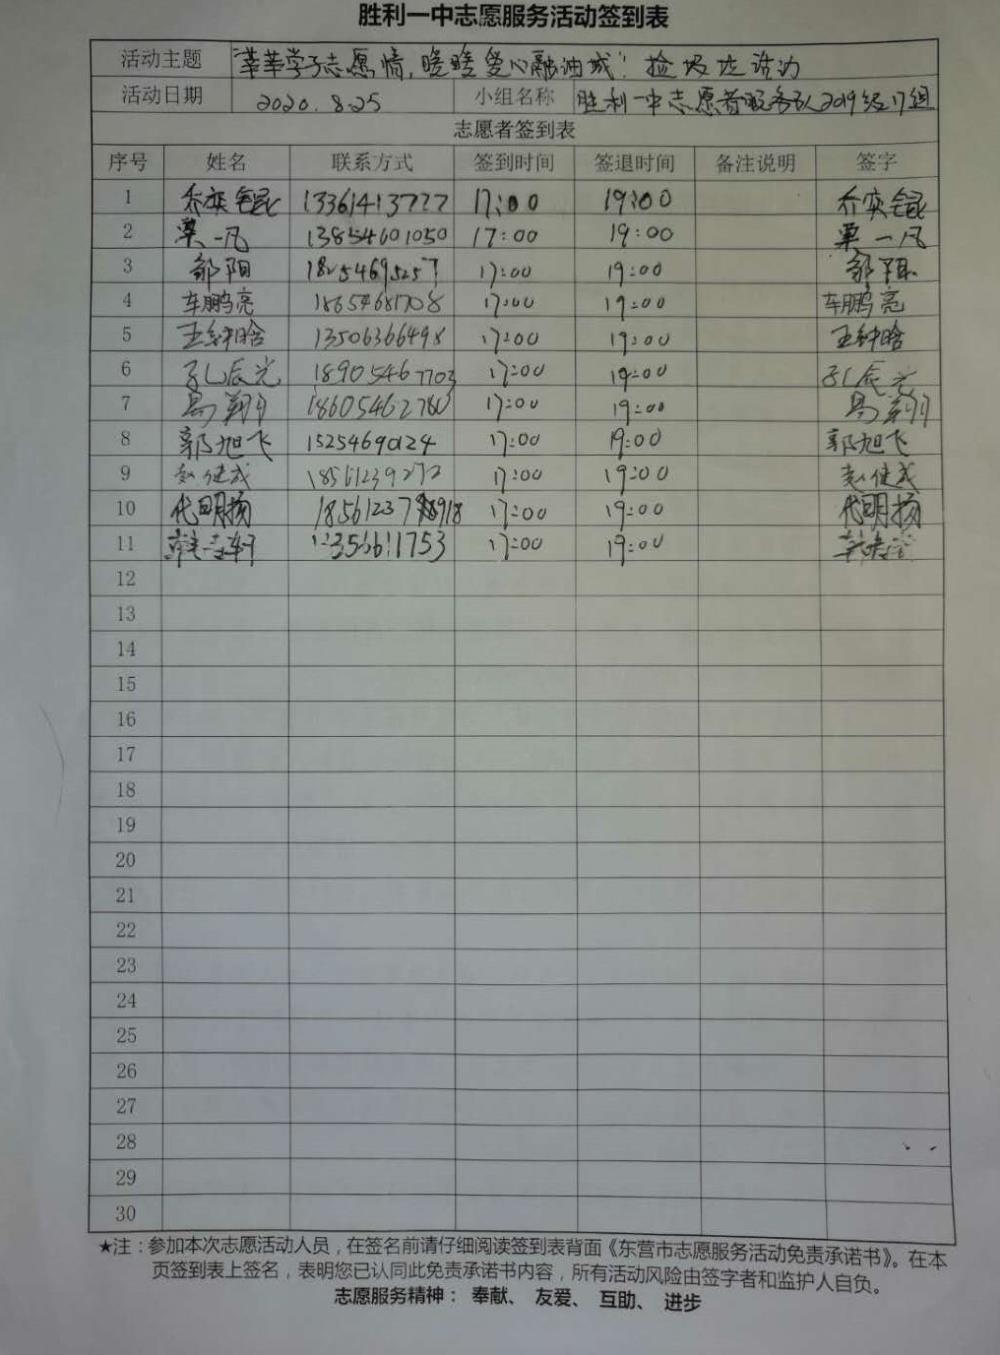 胜利一中志愿服务活动签到表
活动主题 “莘莘学子志愿情,暖暖爱心融油城”捡垃圾活动
活动日期 2020.8.25 小组名称 胜利一中志愿者服务队2019级17组
志愿者签到表
序号 姓名 联系方式 签到时间 签退时间 备注说明 签字
1 乔奕锟 13361413777 17:00 19:00 乔奕锟
2 栗一凡 13854601050 17:00 19:00 栗一凡
3 邹阳 17:00 19:00 邹阳
4 车鹏亮 17:00 19:00 车鹏亮
5 王钟晗 13506366498 17:00 19:00 王钟晗
6 孔辰光 18905467703 17:00 19:00 孔辰光
7 18605462780 17:00 19:00
8 郭旭飞 15254690124 17:00 19:00 郭旭飞
9 赵健成 18561239272 17:00 19:00 赵健成
10 代明扬 17:00 19:00 代明扬
11 17:00 19:00
12
13
14
15
16
17
18
19
20
21
22
23
24
25
26
27
28
29
30
★注:参加本次志愿活动人员,在签名前请仔细阅读签到表背面《东营市志愿服务活动免责承诺书》。在本
页签到表上签名,表明您已认同此免责承诺书内容,所有活动风险由签字者和监护人自负。
志愿服务精神: 奉献、 友爱、 互助、 进步